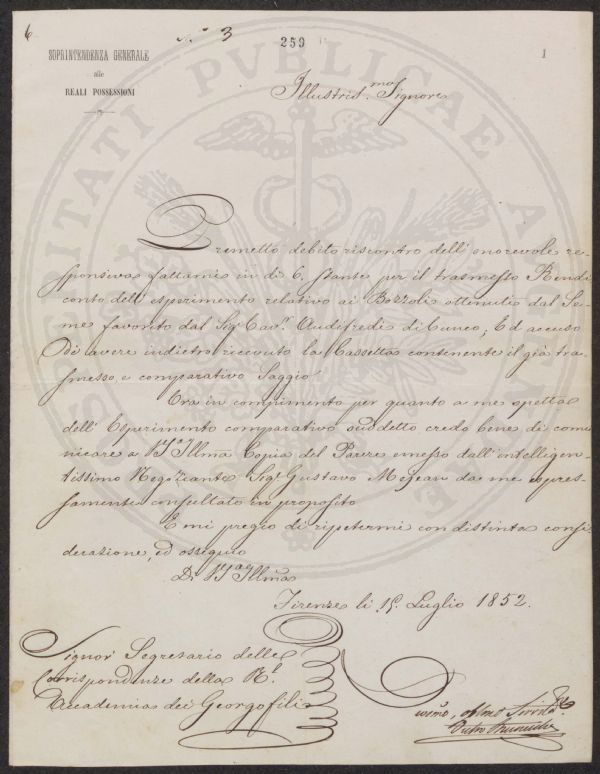 6
N.° 3
259
1
SOPRINTENDENZA GENERALE
alle
REALI POSSESSIONI
Illustris.mo Signore
Premetto debito riscontro dell' onorevole re-
sponsiva fattami in dì 6. stante per il trasmesso Rendi
conto dell' esperimento relativo ai Bozzoli ottenuti dal Se-
me favorito dal Sig.r Cav.r Audifredi di Cuneo; Ed accuso
di avere indietro ricevuto la Cassetta contenente il già tra-
smesso, e comparativo Saggio
Ora in compimento per quanto a me spetta
dell' Esperimento comparativo suddetto credo bene di comu
nicare a V.S.a Ill͠ma Copia del Parere emesso dall' intelligen-
tissimo Negoziante Sig.r Gustavo Mejean da me espres-
samente consultato in proposito
E mi pregio di ripetermi con distinta consi-
derazione, ed ossequio
Di V.S.a Ill͠ma
Firenze li 15. Luglio 1852.
Signor Segretario delle
Corrispondenze della R.l
Accademia dei Georgofili
PROSPERITATI PVBLICAE AVGENDAE